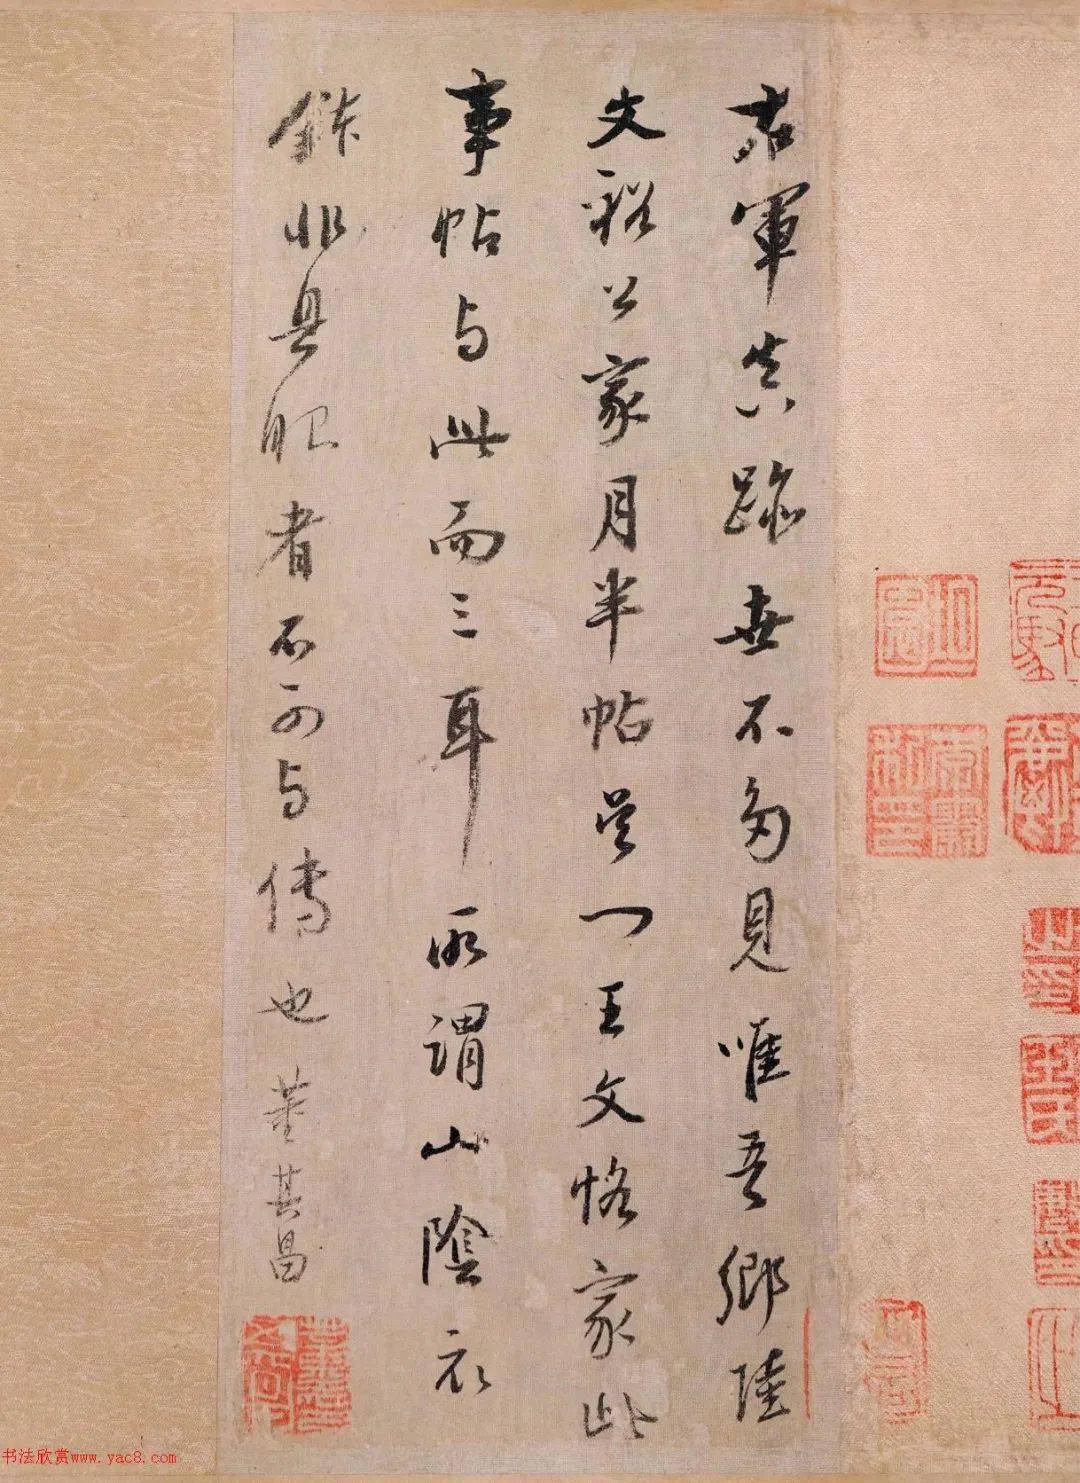 右軍真跡世不多見唯吾鄉陸
文裕公家月半帖吳門王文恪家此
事帖与此而三耳所謂山陰衣
鉢非具眼者不可与傳也董其昌
书法欣赏www.yac8.com